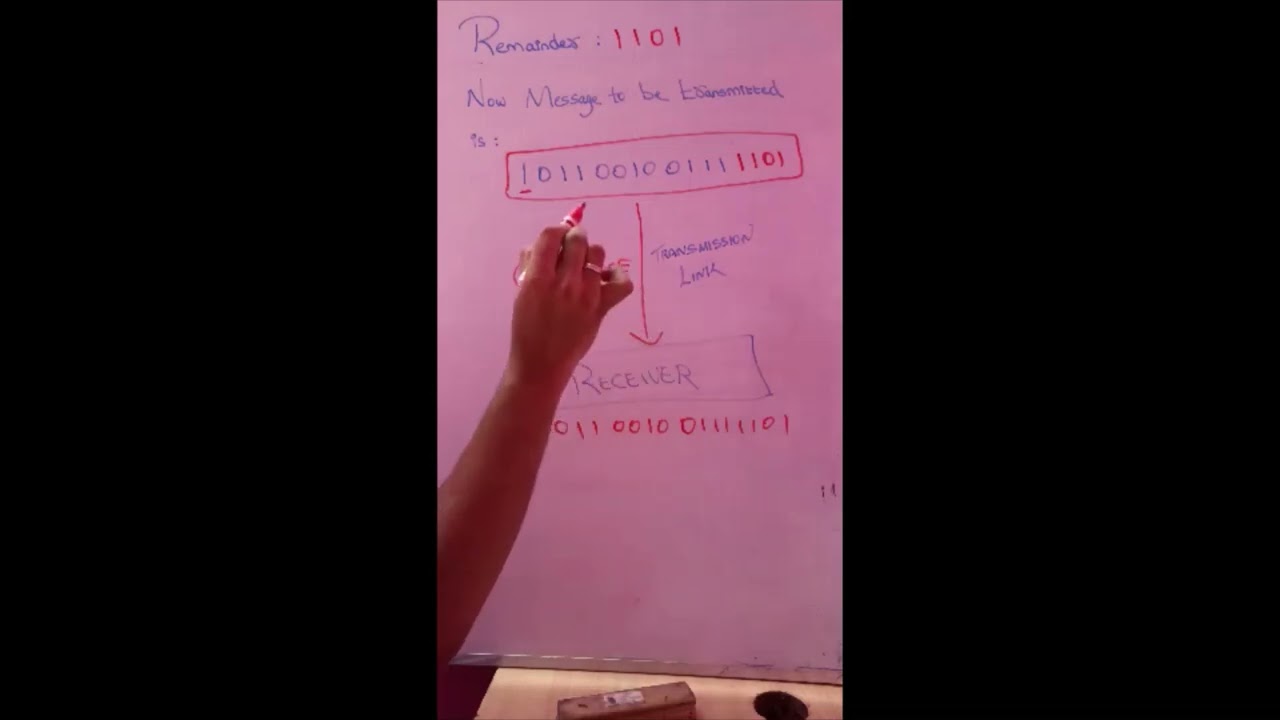 Remainder : 1101
Now Message to be transmitted
is :
1011001001111101
TRANSMISSION
LINK
RECEIVER
011001001111101